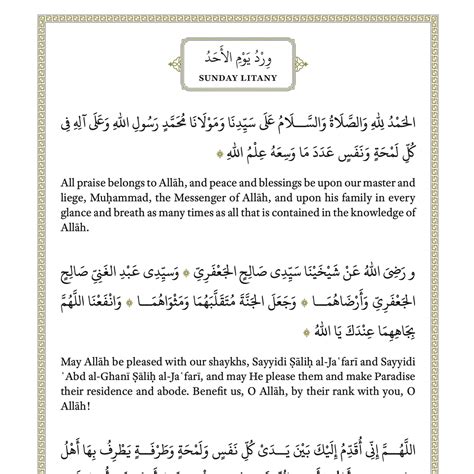 وِرْدُ يَوْمِ الأَحَدُ
SUNDAY LITANY
الحَمْدُ لِلَّهِ وَالصَّلَاةُ وَالسَّلَامُ عَلَى سَيِّدِنَا وَمَوْلَانَا مُحَمَّدٍ رَسُولِ اللهِ وَعَلَى آلِهِ فِى
كُلِّ لَمْحَةٍ وَنَفَسٍ عَدَدَ مَا وَسِعَهُ عِلْمُ اللهِ
All praise belongs to Allāh, and peace and blessings be upon our master and
liege, Muḥammad, the Messenger of Allāh, and upon his family in every
glance and breath as many times as all that is contained in the knowledge of
Allāh.
و رَضِىَ اللهُ عَنْ شَيْخَيْنَا سَيِّدِى صَالِحٍ الجَعْفَرِيِّ وَسَيِّدِى عَبْدِ الغَنِيِّ صَالِحٍ
الجَعْفَرِيِّ وَأَرْضَاهُمَا وَجَعَلَ الجَنَّةَ مُتَقَلَّبَهُمَا وَمَثْوَاهُمَا وَانْفَعْنَا اللَّهُمَّ
بِجَاهِهِمَا عِنْدَكَ يَا اللهُ
May Allāh be pleased with our shaykhs, Sayyidi Ṣāliḥ al-Jaʿfarī and Sayyidi
ʿAbd al-Ghanī Ṣāliḥ al-Jaʿfarī, and may He please them and make Paradise
their residence and abode. Benefit us, O Allāh, by their rank with you, O
Allāh!
اللَّهُمَّ إِنِّى أُقَدِّمُ إِلَيْكَ بَيْنَ يَدَىْ كُلِّ نَفَسٍ وَلَمْحَةٍ وَطَرْفَةٍ يَطْرِفُ بِهَا أَهْلُ